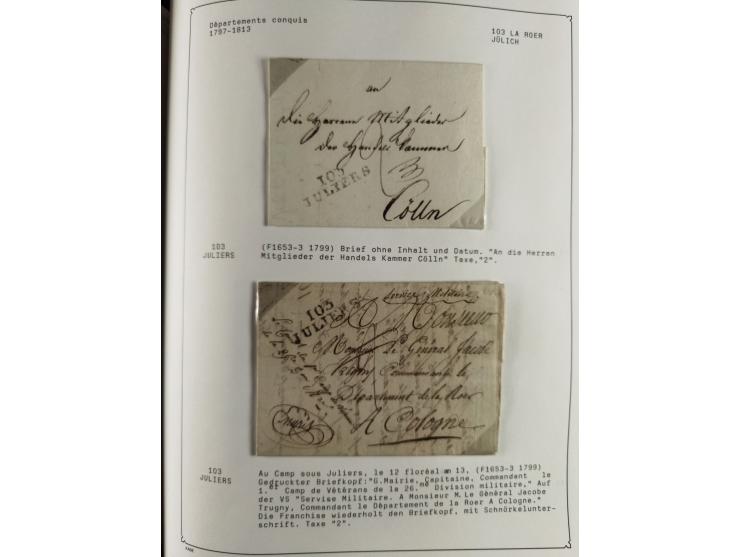 Départements conquis
1797-1813
103 LA ROER
JÜLICH
an
Die Herren Mitglieder
der Handels Kammer
103
JULIERS
Cölln
103
JULIERS
(F1653-3 1799) Brief ohne Inhalt und Datum. "An die Herren
Mitglieder der Handels Kammer Cölln" Taxe,"2".
103
JULIERS
Service Militaire
A Monsieur
Monsieur Le Général Jacobé
Trigny Commandant le
Département de la Roer
A Cologne
103
JULIERS
Au Camp sous Juliers, le 12 floréal an 13, (F1653-3 1799)
Gedruckter Briefkopf:"G.Mairie, Capitaine, Commandant le
1.er Camp de Vétérans de la 26.me Division militaire," Auf
der VS "Servise Militaire. A Monsieur M.Le Général Jacobe
Trugny, Commandant le Département de la Roer A Cologne."
Die Franchise wiederholt den Briefkopf, mit Schnörkelunter-
schrift. Taxe "2".